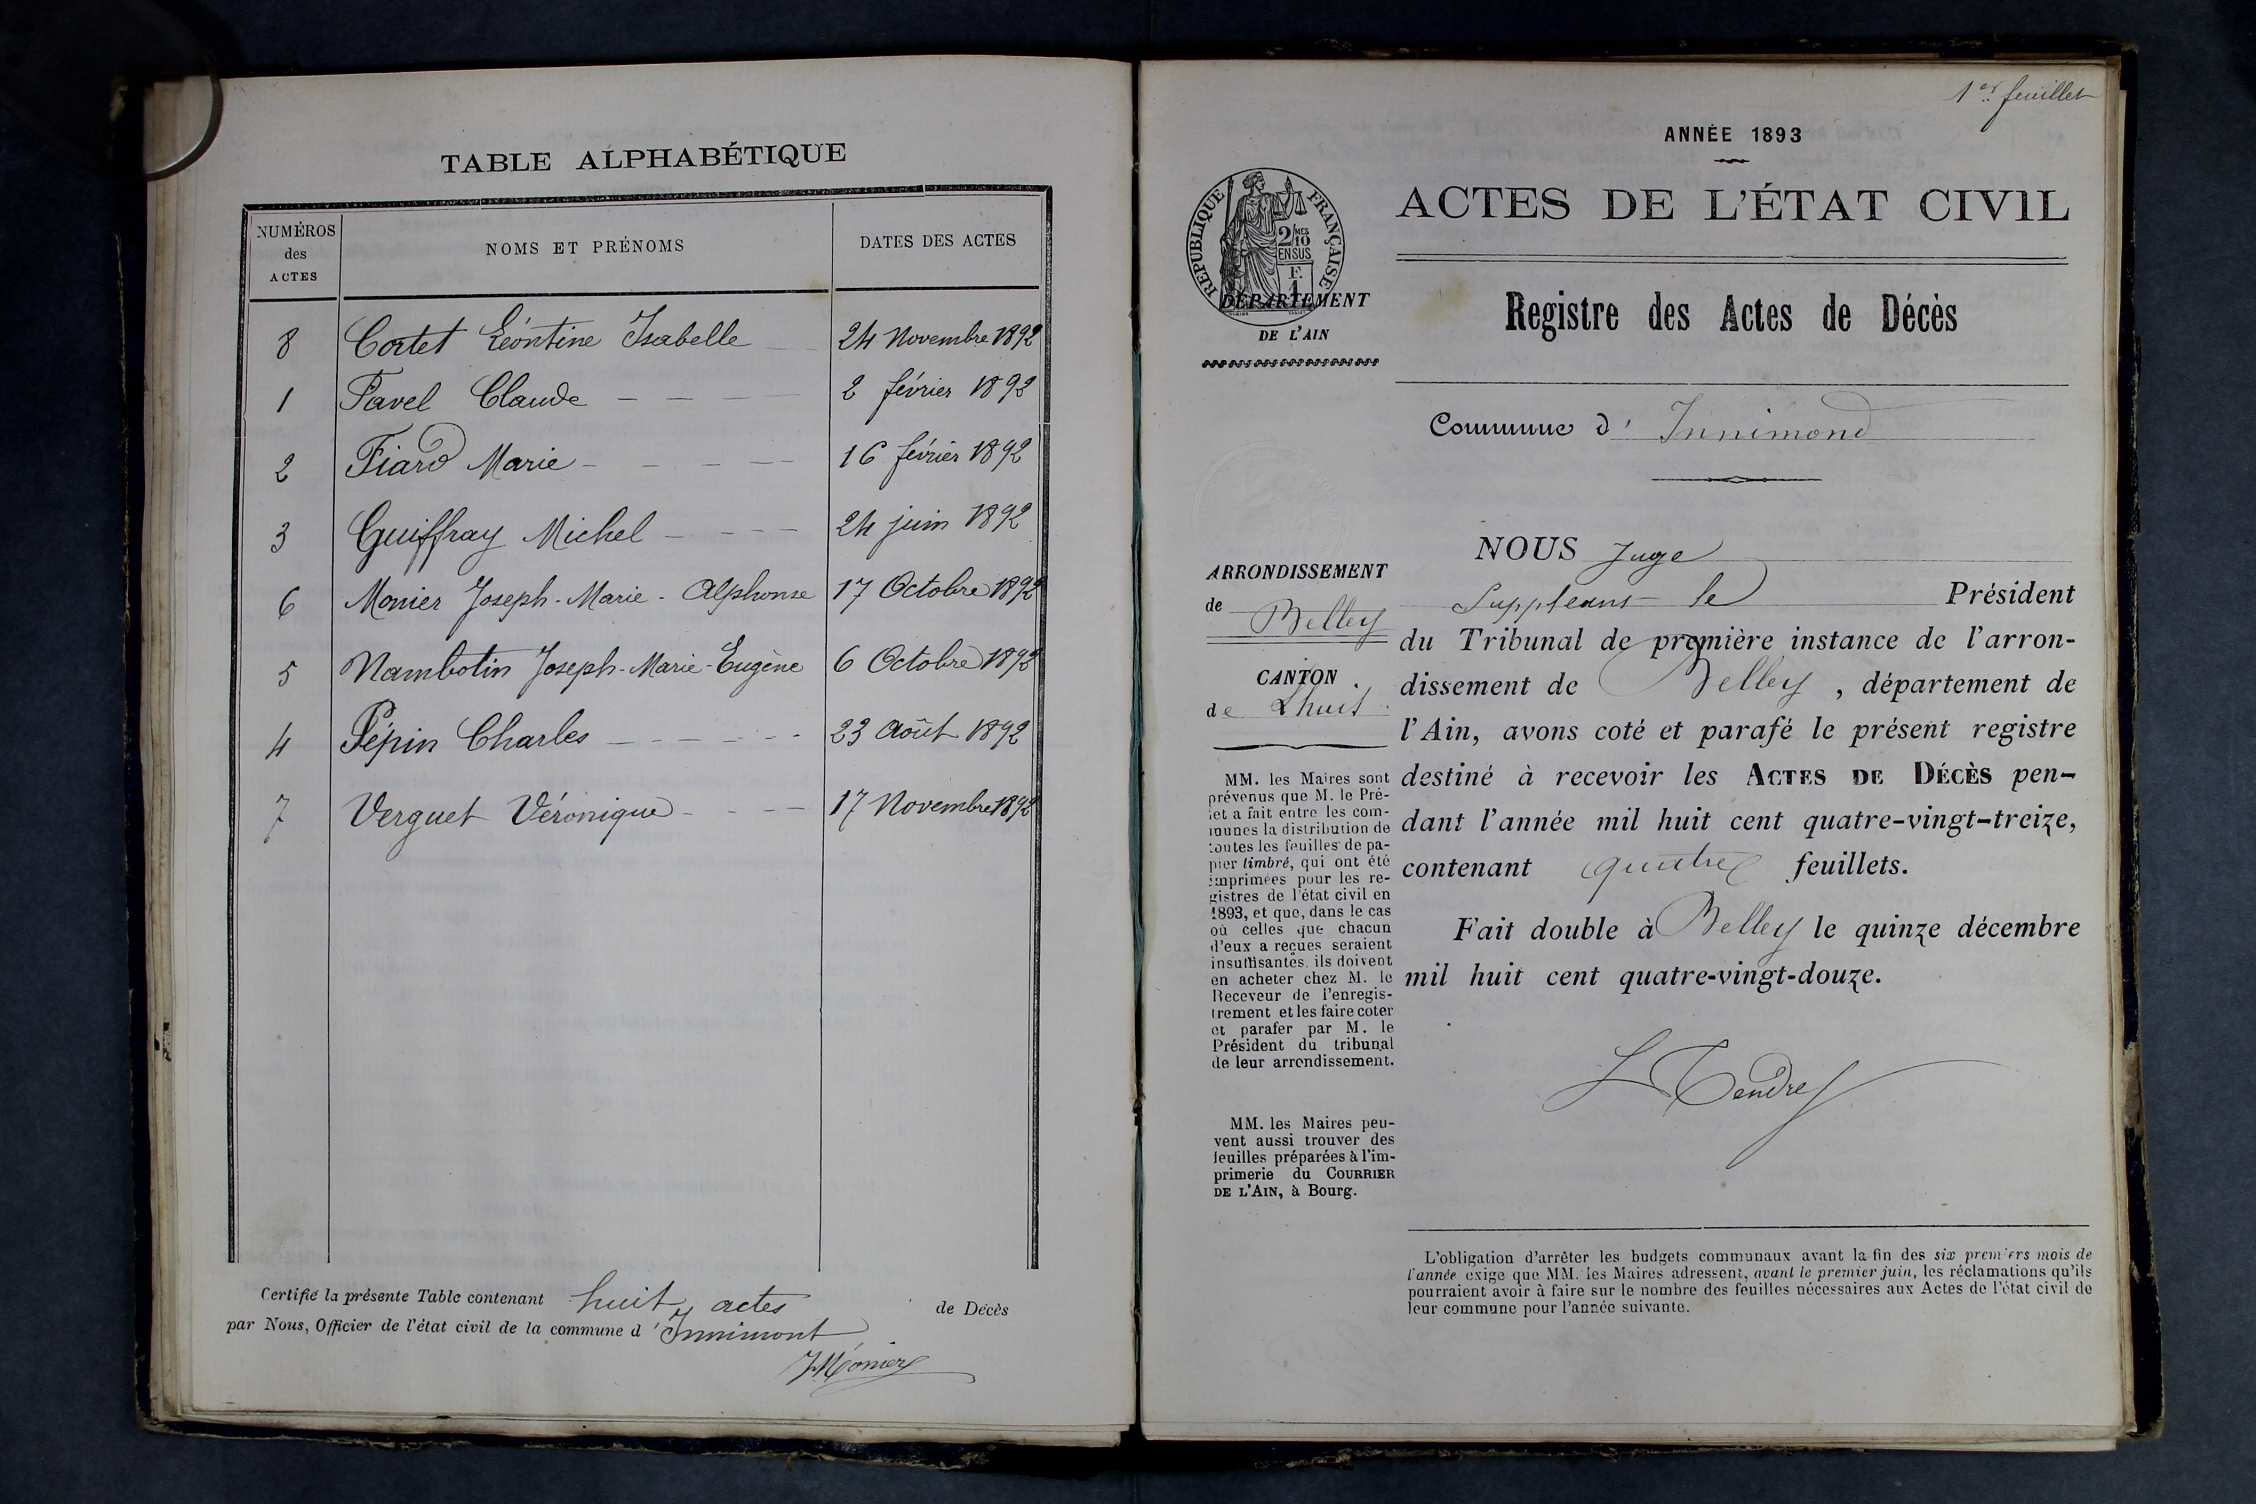 TABLE ALPHABÉTIQUE
NUMÉROS
des
ACTES
NOMS ET PRÉNOMS
DATES DES ACTES
8 Cortet Léontine Isabelle 24 Novembre 1892
1 Favel Claude 2 février 1892
2 Fiard Marie 16 février 1892
3 Guiffray Michel 24 juin 1892
6 Monier Joseph-Marie-Alphonse 17 Octobre 1892
5 Nambotin Joseph-Marie-Eugène 6 Octobre 1892
4 Pépin Charles 23 Août 1892
7 Verguet Véronique 17 Novembre 1892
Certifié la présente Table contenant huit actes de Décès
par Nous, Officier de l'état civil de la commune d'Innimont
J Monier
1er feuillet
ANNÉE 1893
RÉPUBLIQUE FRANÇAISE
2/10
MES
EN SUS
F.
1
DÉPARTEMENT
DE L'AIN
ACTES DE L'ÉTAT CIVIL
Registre des Actes de Décès
Commune d'Innimond
ARRONDISSEMENT
de Belley
CANTON
de Lhuis
MM. les Maires sont
prévenus que M. le Pré-
fet a fait entre les com-
munes la distribution de
toutes les feuilles de pa-
pier timbré, qui ont été
imprimées pour les re-
gistres de l'état civil en
1893, et que, dans le cas
où celles que chacun
d'eux a reçues seraient
insuffisantes, ils doivent
en acheter chez M. le
Receveur de l'enregis-
trement et les faire coter
et parafer par M. le
Président du tribunal
de leur arrondissement.
MM. les Maires peu-
vent aussi trouver des
feuilles préparées à l'im-
primerie du COURRIER
DE L'AIN, à Bourg.
NOUS Juge
Suppléant le Président
du Tribunal de première instance de l'arron-
dissement de Belley, département de
l'Ain, avons coté et parafé le présent registre
destiné à recevoir les ACTES DE DÉCÈS pen-
dant l'année mil huit cent quatre-vingt-treize,
contenant quatre feuillets.
Fait double à Belley le quinze décembre
mil huit cent quatre-vingt-douze.
L Tendret
L'obligation d'arrêter les budgets communaux avant la fin des six premiers mois de
l'année exige que MM. les Maires adressent, avant le premier juin, les réclamations qu'ils
pourraient avoir à faire sur le nombre des feuilles nécessaires aux Actes de l'état civil de
leur commune pour l'année suivante.